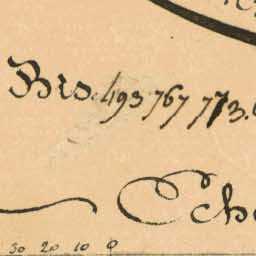 Brs. 493 767 773.
Ech
30 20 10 0